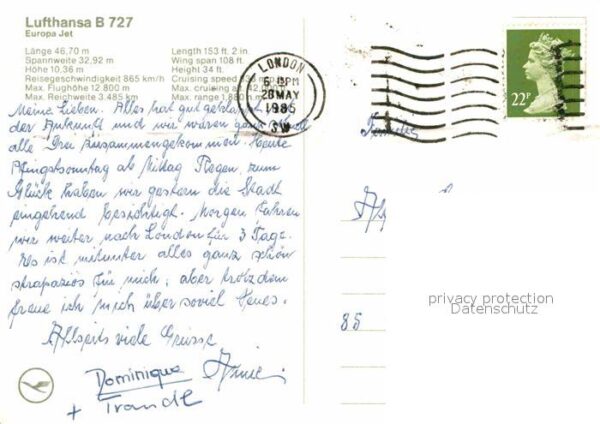 Lufthansa B 727
Europa Jet
Länge 46,70 m
Spannweite 32,92 m
Höhe 10,36 m
Reisegeschwindigkeit 865 km/h
Max. Flughöhe 12.800 m
Max. Reichweite 3.485 km
Length 153 ft. 2 in.
Wing span 108 ft.
Height 34 ft.
Cruising speed
Max. cruising
Max. range
LONDON
28 MAY
1985
SW
22P
Meine Lieben. Alles hat gut geklappt
der Ankunft und wir waren ganz
alle Drei zusammengekommen. Heute
Pfingstsonntag ab Mittag Regen, zum
Glück haben wir gestern die Stadt
eingehend besichtigt. Morgen fahren
wir weiter nach London für 3 Tage.
Es ist mitunter alles ganz schön
strapaziös für mich, aber trotzdem
freue ich mich über soviel Neues.
Allseits viele Grüsse
Dominique
+ Traudl
Familie
85
privacy protection
Datenschutz